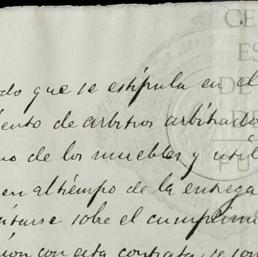 CE
ES
DE
do que se estipula en el
iento de arbitros arbitrado
no de los muebles y util
en al tiempo de la entrega
sobre el cumplimi
ion con esta contrata se son
FU